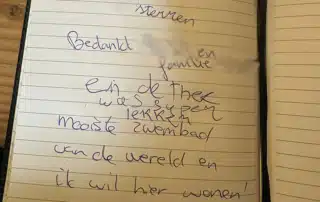 sterren
Bedankt en
familie
En de thee
was super
lekker
mooiste zwembad
van de wereld en
ik wil hier wonen!